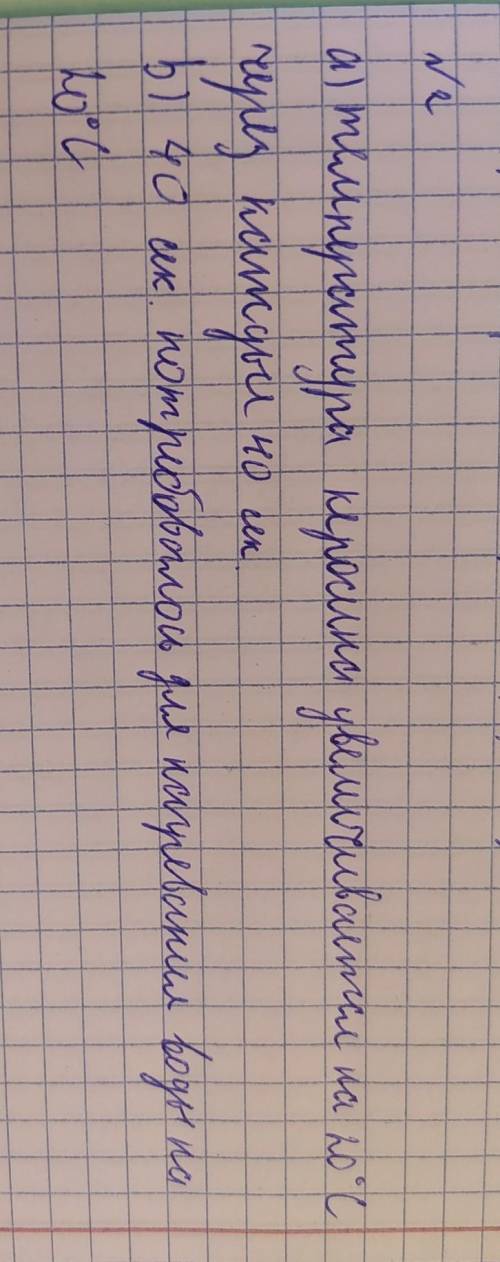 №2
а) температура керосина увеличивается на 20°C
через каждые 40 сек.
b) 40 сек. потребовалось для нагревания воды на
20°C